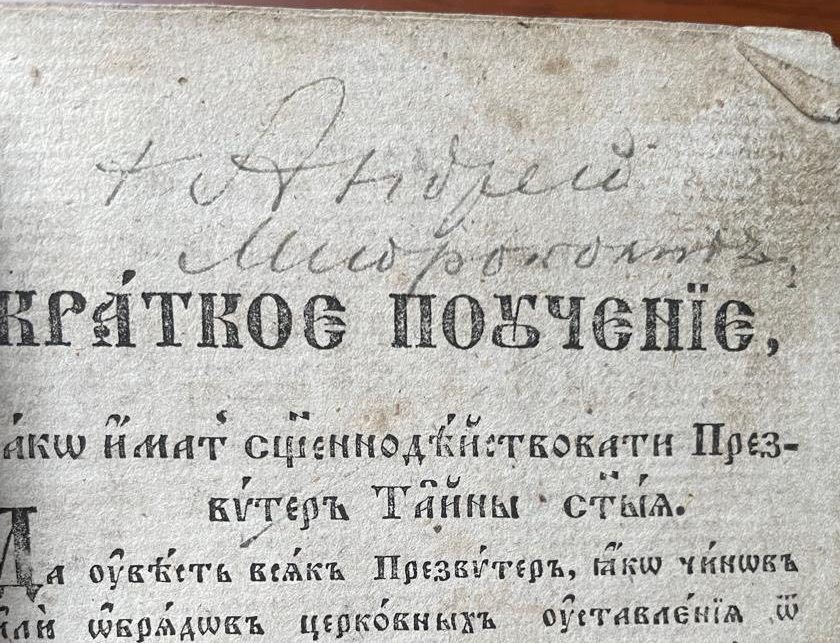 + Андрей
КРА́ТКОЕ ПОꙊЧЕНЇЕ,
а́кѡ и҆́мат̾ сщ҃еннодѣ́йствовати През-
вѵ́теръ Та̑йны ст҃ы́ѧ.
Да ᲂу҆вѣ́сть всѧ́къ Презвѵ́теръ, ꙗ҆́кѡ чи́нѡвъ
и҆лѝ ѡ҆брѧ́дѡвъ церко́вныхъ ᲂу҆ставле́нїѧ ѿ